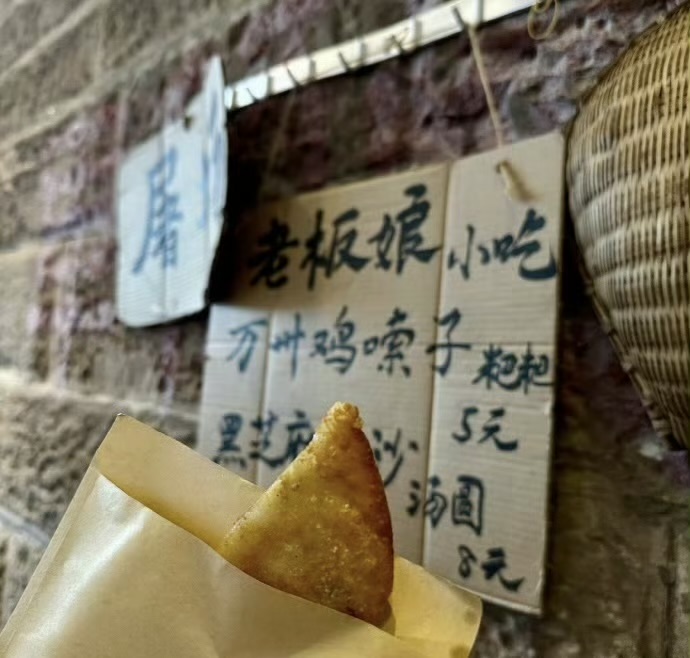 屠
老板娘小吃
万州鸡嗦子粑粑
5元
黑芝麻沙
汤圆
8元